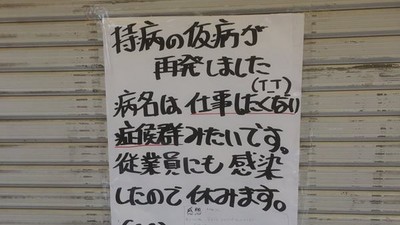 持病の仮病が
再発しました
(T_T)
病名は仕事したくない
症候群みたいです。
従業員にも感染
したので休みます。